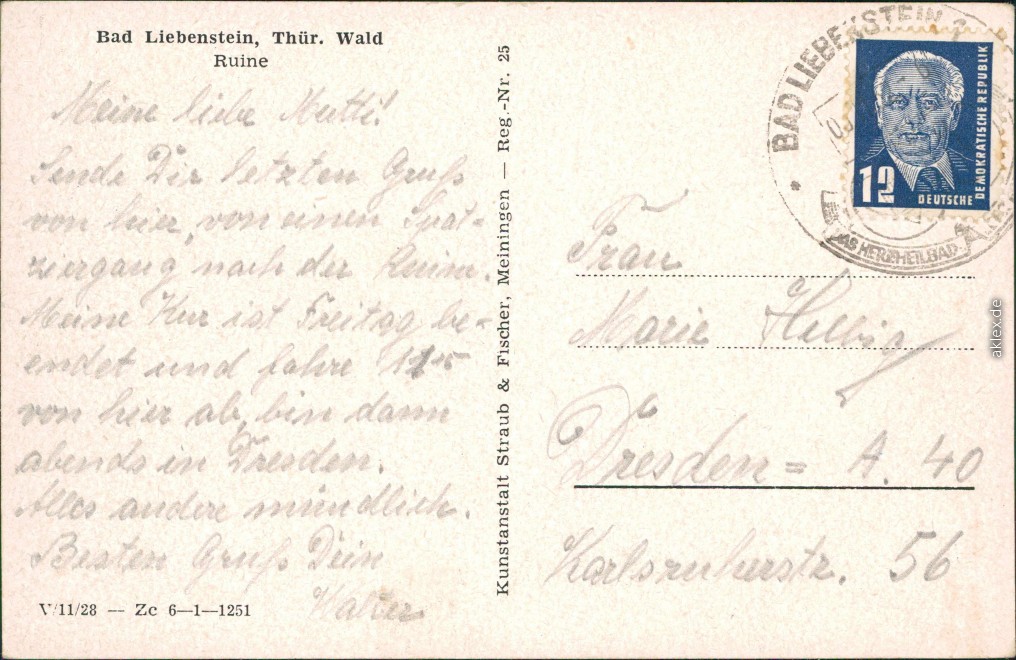 Bad Liebenstein, Thür. Wald
Ruine
Meine liebe Mutti!
Sende Dir letzten Gruß
von hier, von einen Spat-
ziergang nach der Ruine.
Meine Kur ist Freitag be-
endet und fahre 11
von hier ab, bin dann
abends in Dresden.
Alles andere mündlich.
Besten Gruß Dein
Walter
V/11/28 — Zc 6—1—1251
Kunstanstalt Straub & Fischer, Meiningen — Reg.-Nr. 25
BAD LIEBENSTEIN
HERZHEILBAD
12
DEUTSCHE
DEMOKRATISCHE REPUBLIK
Frau
Marie Helbig
Dresden = A. 40
Karlsruherstr. 56
aklex.de